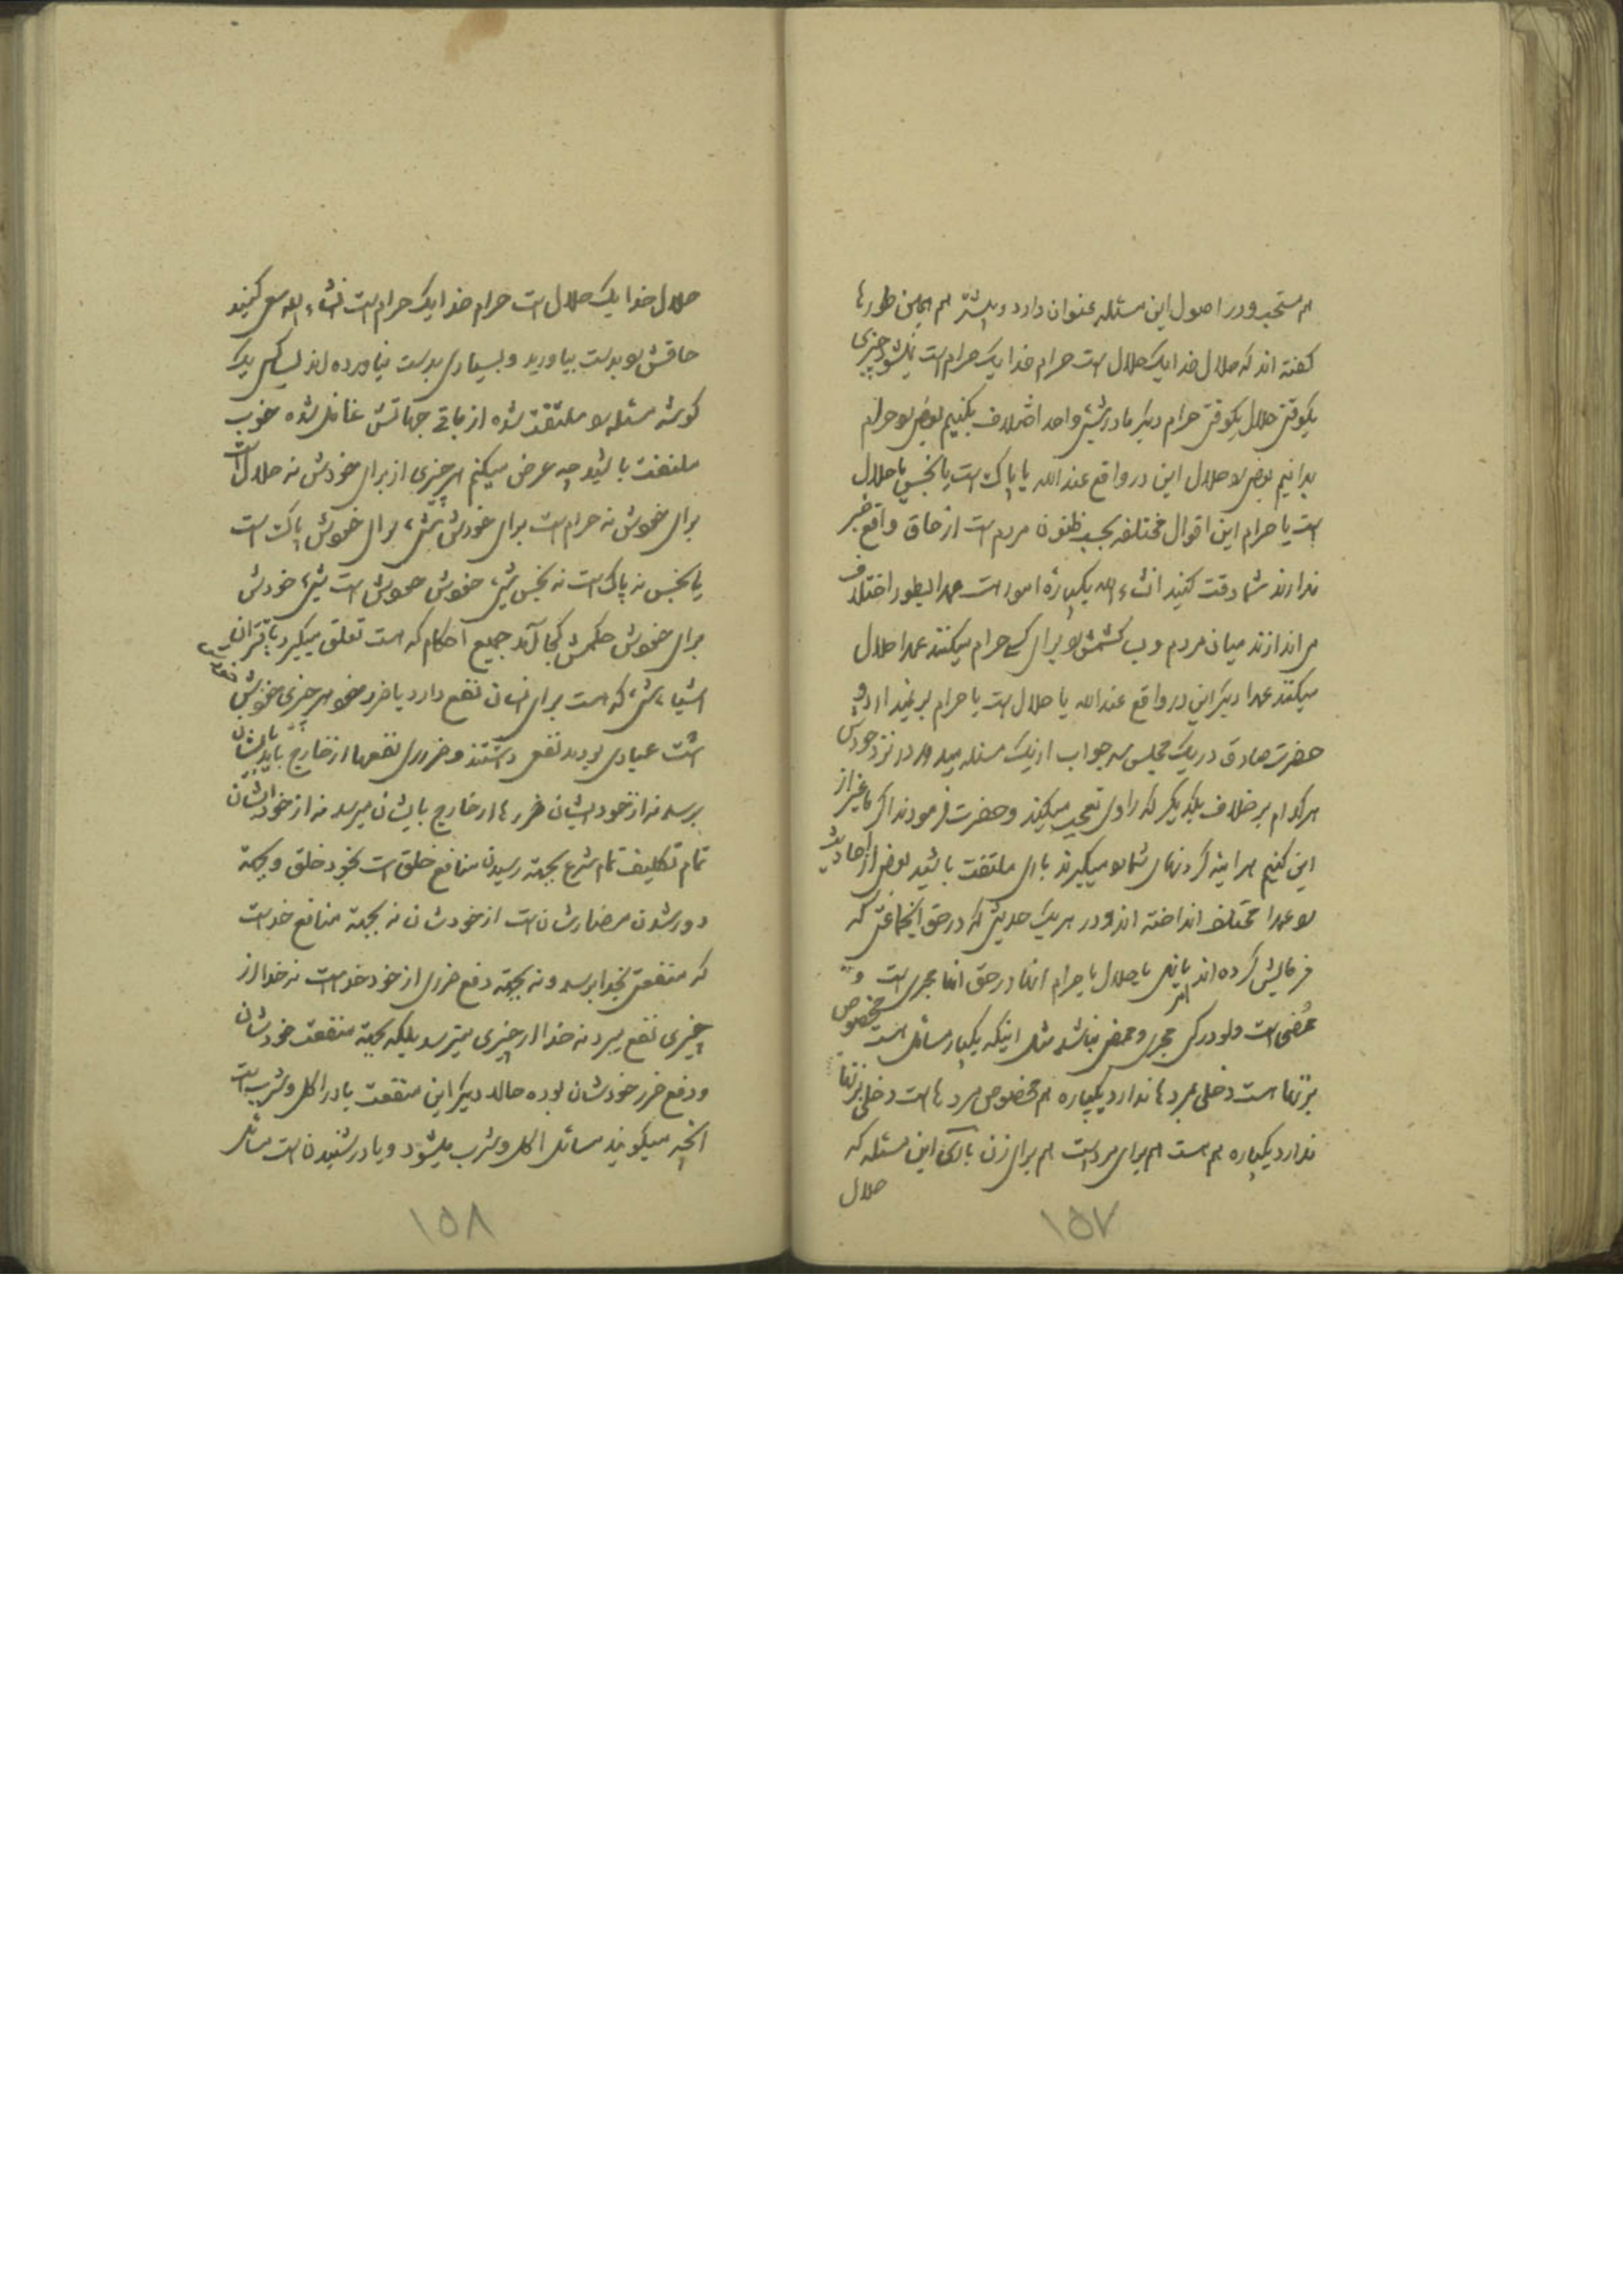 هم مستحب و در اصول این مسئله عنوان دارد و بیشتر هم همین طورها
گفته اند که حلال خدا یک حلال است حرام خدا یک حرام است نمیشود چیزی
یکوقتی حلال یکوقتی حرام دیگر ما در شیئی واحد اختلاف بکنیم بعضی را حرام
بدانیم بعضی را حلال این در واقع عند الله یا پاک است یا نجس یا حلال
است یا حرام این اقوال مختلفه بحسب ظنون مردم است از حاق واقع خبر
ندارند شما دقت کنید انشاء الله یکپاره امور است عمدا اینطور اختلاف
می اندازند میان مردم و کشمش را برای کسی حرام میکنند عمدا حلال
میکنند عمدا دیگر این در واقع عند الله یا حلال است یا حرام بر نمیدارد و
حضرت صادق در یک مجلس سه جواب از یک مسئله میدهد در نزد خودش
هر کدام بر خلاف یکدیگر که راوی تعجب میکند و حضرت فرمودند اگر ما غیر از
این کنیم هر اینه گردنهای شما را میگیرند باری ملتفت باشید بعضی از احادیث
را عمدا مختلف انداخته اند و در هر یک حدیثی که در حق جماعتی که
فرمایش کرده اند یا نهی یا حلال یا حرام انها در حق انها مجری است و
امر
ممضی است ولو در کسی مجری و ممضی نباشد مثل اینکه یکپاره مسائل است مخصوص
بزنها است دخلی بمردها ندارد یکپاره هم مخصوص مردها است دخلی بزنها
ندارد یکپاره هم هست هم برای مرد است هم برای زن باری این مسئله که
حلال
۱۵۷
حلال خدا یک حلال است حرام خدا یک حرام است انشاء الله سعی کنید
حاقش را بدست بیاورید و بسیاری بدست نیاورده اند کسی یک
گوشه مسئله را ملتفت شده از باقی جهاتش غافل شده خوب
ملتفت باشید چه عرض میکنم هر چیزی از برای خودش نه حلال است
برای خودش نه حرام است برای خودش شیء برای خودش پاک است
یا نجس نه پاک است نه نجس شیء خودش خودش است شیء خودش
برای خودش حکمش کجا آمد جمیع احکام که هست تعلق میگیرد باقتران
اشیاء شیء که هست برای انسان نفع دارد یا ضرر هر چیزی خودش
عبادی بودند نفعی داشتند و ضرری نفعها از خارج باید بایشان
برسد نه از خودشان ضررها از خارج بایشان میرسد نه از خودشان
تمام تکلیف تمام شرع بجهة رسیدن منافع خلق است بخود خلق و بجهة
دور شدن مضارشان است از خودشان نه بجهة منافع خداست
که منفعتی بخدا برسد و نه بجهة دفع ضرری از خود خداست نه خدا از
چیزی نفع میبرد نه خدا از چیزی میترسد بلکه بجهة منفعت خودشان
و دفع ضرر خودشان بوده حالا دیگر این منفعت یا در اکل و شرب است
انچه میگویند مسائل اکل و شرب میشود و یا در شنیدن است مسائل
۱۵۸